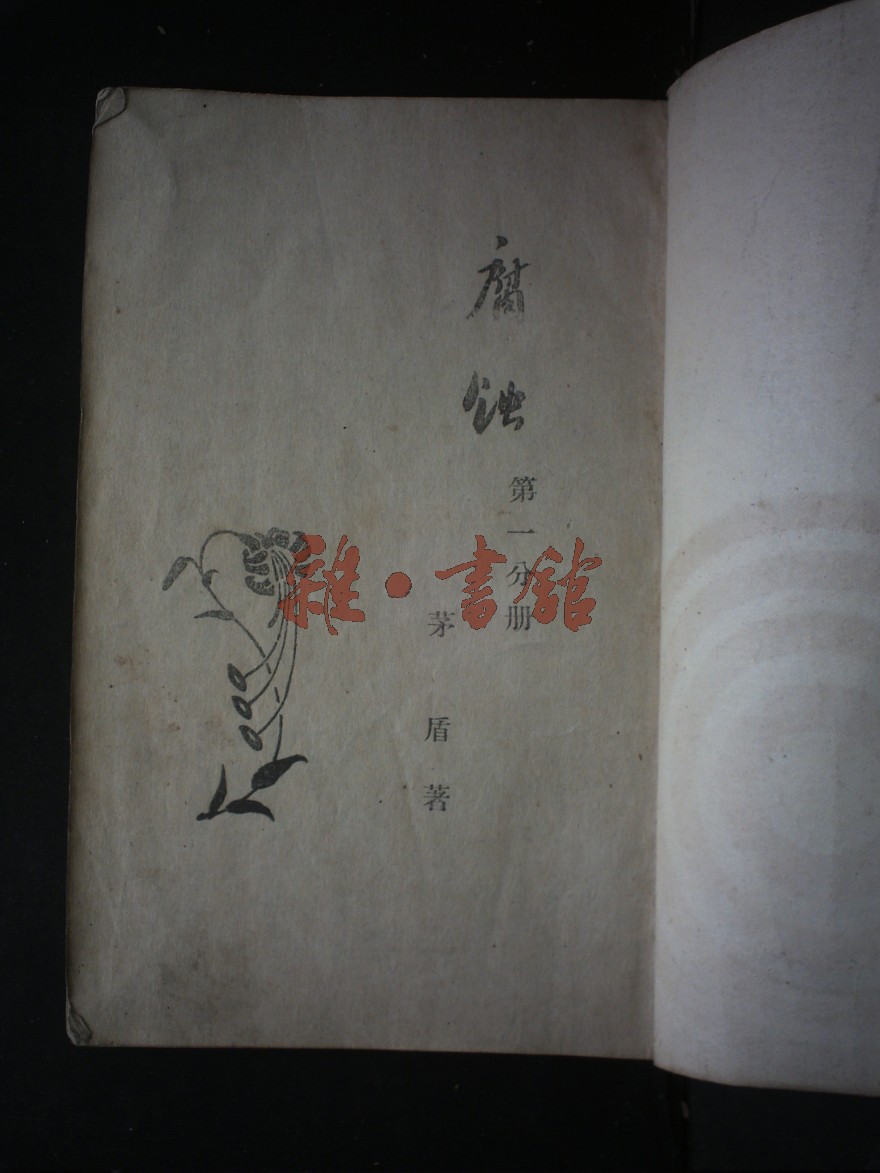 腐蝕
第一分册
茅盾著
雜·書館